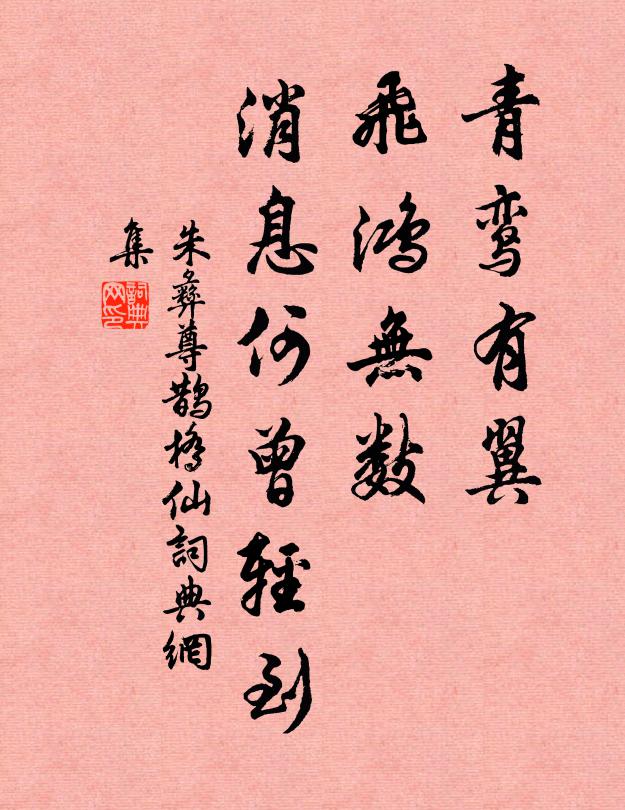 青鸾有翼
飛鴻無數
消息何曾輕到
朱彝尊鵲橋仙詞典網
集
詞典
网印